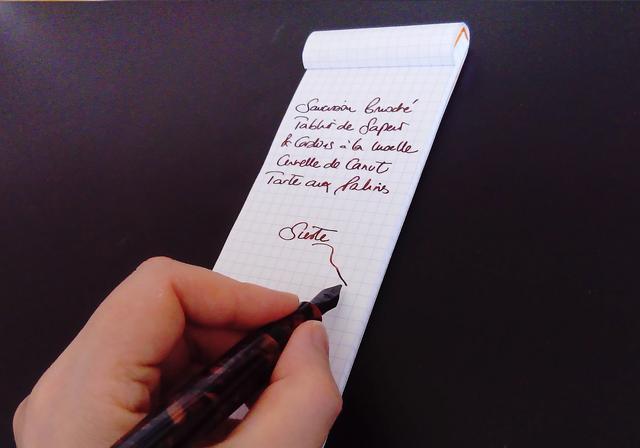 Saucisson Brioché
Tablier de Sapeur
& Cardons à la Moelle
Cervelle de Canut
Tarte aux Pralines
Sieste